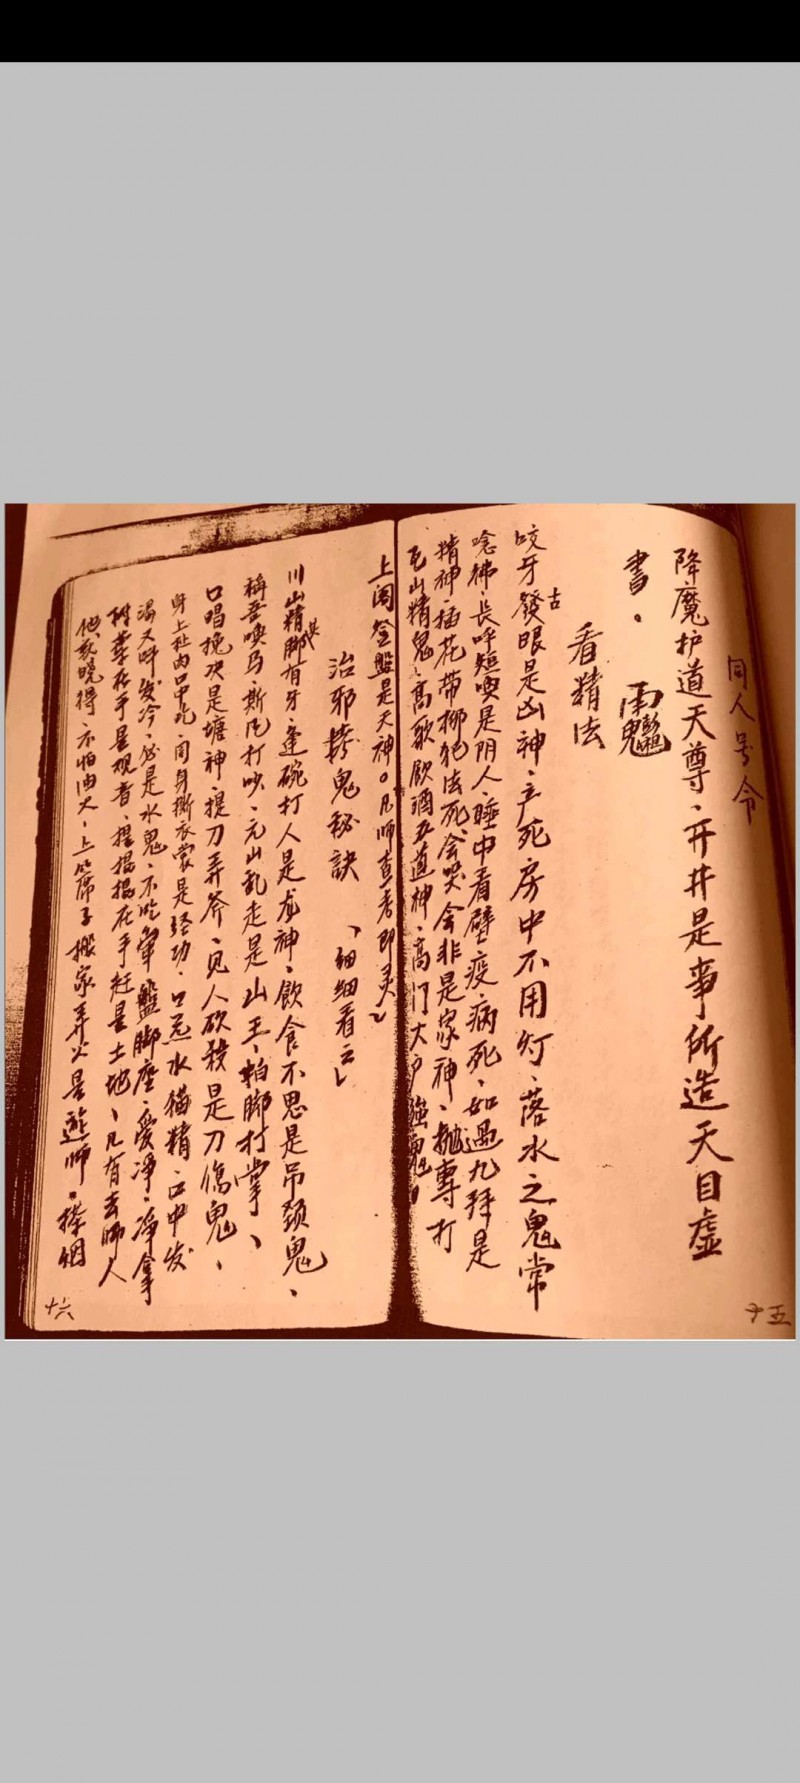 同人号令
降魔护道天尊、开井是亊所造天目虚
書。
看精法
咬牙發古眼是凶神、产死房中不用灯、落水之鬼常
唸彿、長呼短唤是阴人、睡中看壁疫病死、如遇九拜是
精神、插花带柳犯法死、会哭会非是家神、抛專打
瓦山精鬼、高歌飲酒五道神、高门大户強鬼
上闹登盤是天神。凡师查者即灵
治邪拷鬼秘訣 、細細看云
川山精脚有牙、逢碗打人是龙神、飲食不思是吊颈鬼、
稱吾唤马、斯厄打吵、元山乱走是山王、拍脚打掌、
口唱挽决是塘神、提刀弄斧、见人砍殺是刀傷鬼、
身上扯肉口中吃、同身撕衣裳是经功、口忌水猫精、口中发
渴又呼发冷、必是水鬼、不吃荤盤脚座、爱凈、凈拿
在手是观音、在手赶是土地、凡有去师人
他敎曉得、不怕油火、上席子搬家弄火是遊师。捧烟
十五
十六